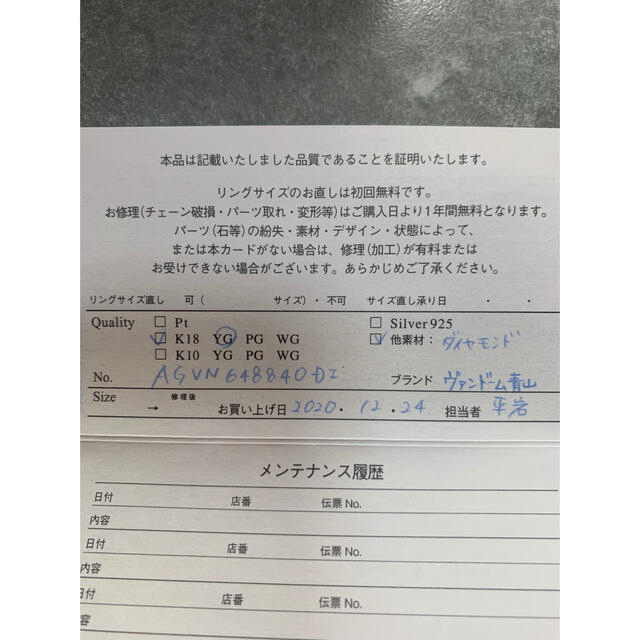 本品は記載いたしました品質であることを証明いたします。
リングサイズのお直しは初回無料です。
お修理(チェーン破損・パーツ取れ・変形等)はご購入日より1年間無料となります。
パーツ(石等)の紛失・素材・デザイン・状態によって、
または本カードがない場合は、修理(加工)が有料または
お受けできない場合がございます。あらかじめご了承ください。
リングサイズ直し 可( サイズ)・不可 サイズ直し承り日 ・ ・
Quality □ Pt □ Silver925
☑ K18 YG PG WG ☑ 他素材:ダイヤモンド
□ K10 YG PG WG
No. AGVN648840DI ブランド ヴァンドーム青山
Size → 修理後 お買い上げ日 2020・12・24 担当者 平岩
メンテナンス履歴
日付 店番 伝票 No.
内容
日付 店番 伝票 No.
内容
日付 店番 伝票 No.
内容